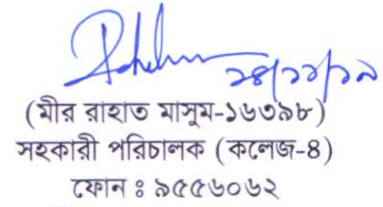 ২৪/১১/১৯
(মীর রাহাত মাসুম-১৬৩৯৮)
সহকারী পরিচালক (কলেজ-৪)
ফোন ঃ ৯৫৫৬০৬২